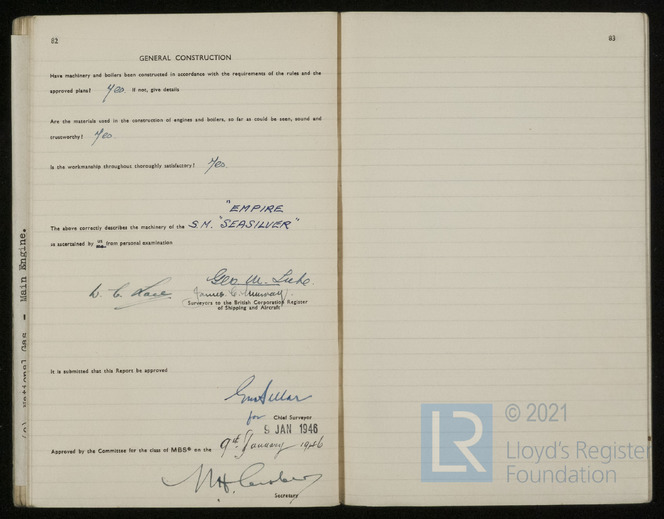 82
GENERAL CONSTRUCTION
Have machinery and boilers been constructed in accordance with the requirements of the rules and the
approved plans? Yes. If not, give details
Are the materials used in the construction of engines and boilers, so far as could be seen, sound and
trustworthy? Yes.
Is the workmanship throughout thoroughly satisfactory? Yes.
"EMPIRE
The above correctly describes the machinery of the S.M. "SEASILVER"
as ascertained by us from personal examination
Geo. M.
James C. Murray.
Surveyors to the British Corporation Register
of Shipping and Aircraft
It is submitted that this Report be approved
for Chief Surveyor
9 JAN 1946
Approved by the Committee for the class of MBS* on the 9th January 1946
Secretary
National Gas - Main Engine.
83
LR
© 2021
Lloyd's Register
Foundation